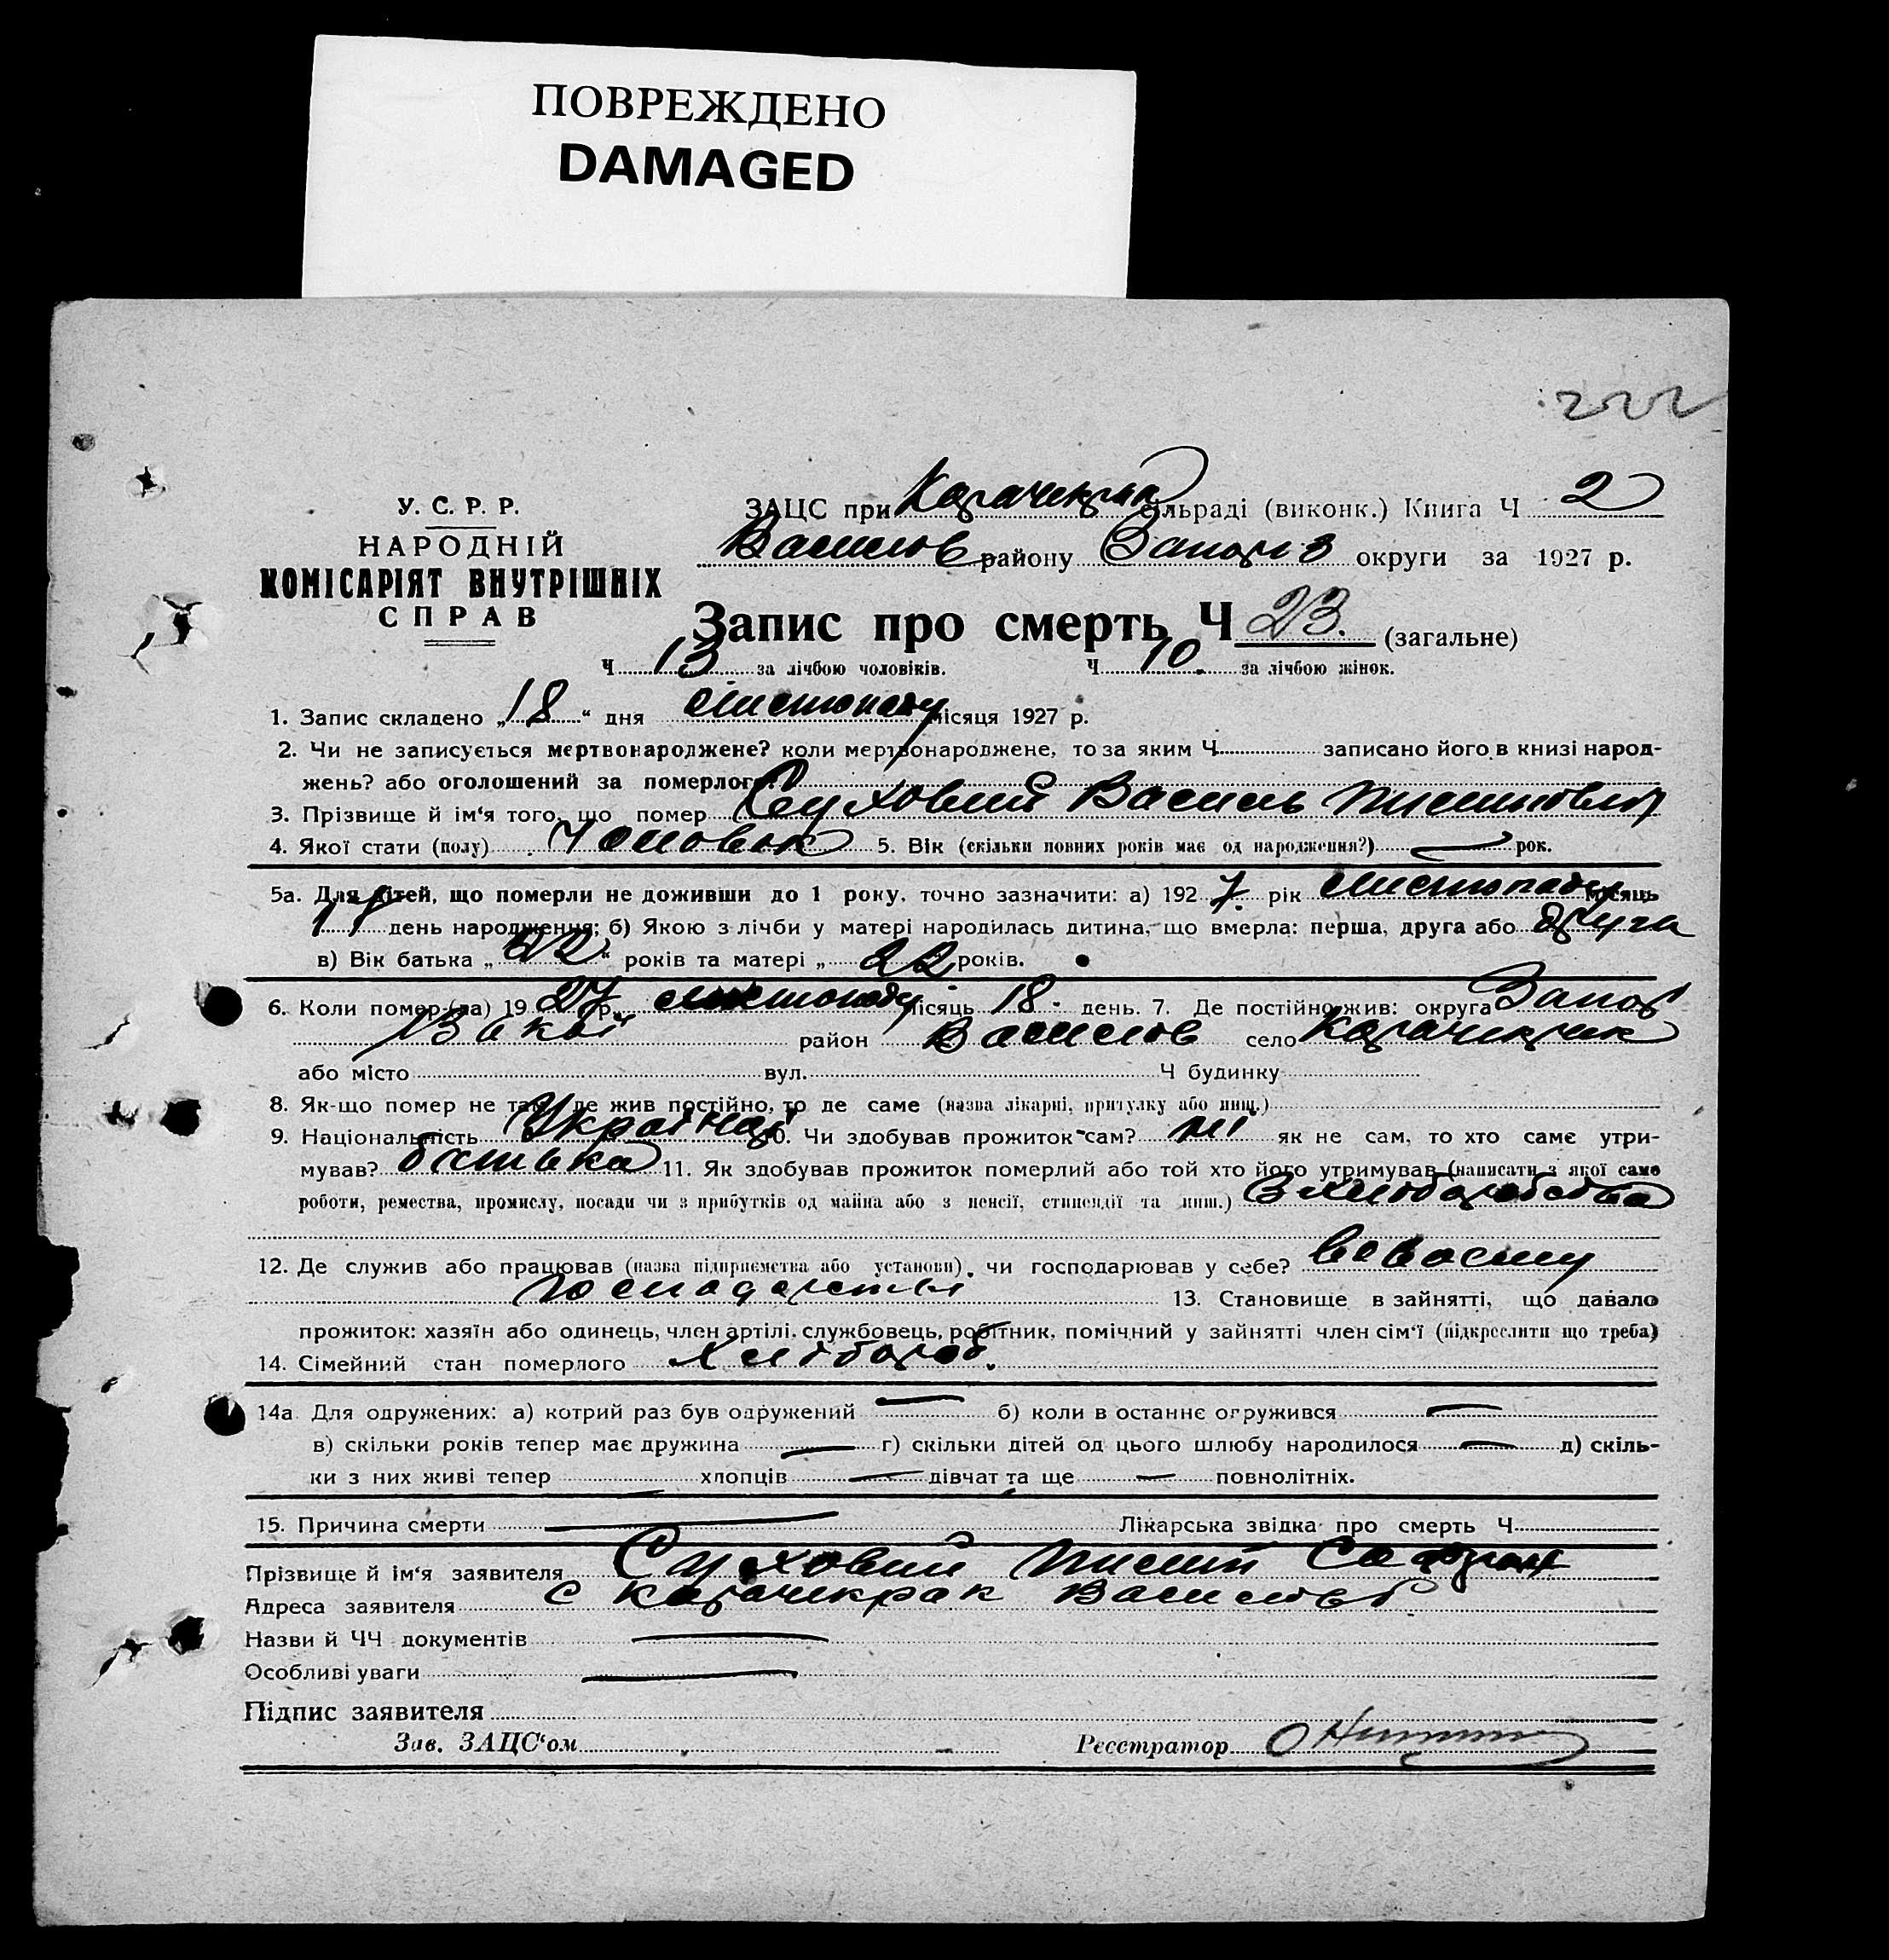 ПОВРЕЖДЕНО
DAMAGED
222
У. С. Р. Р.
НАРОДНІЙ
КОМІСАРІЯТ ВНУТРІШНІХ
СПРАВ
ЗАЦС при Карачекрак сільраді (виконк.) Книга Ч 2
Василів району Запоріз округи за 1927 р.
Запис про смерть Ч 23. (загальне)
Ч 13 за лічбою чоловіків. Ч 10. за лічбою жінок.
1. Запис складено „18“ дня листопаду місяця 1927 р.
2. Чи не записується мертвонароджене? коли мертвонароджене, то за яким Ч. записано його в книзі народ-
жень? або оголошений за померлого?
3. Прізвище й ім‘я того, що помер Суховий Василь
4. Якої стати (полу) Чоловік 5. Вік (скільки повних років має од народження?) — рок.
5а. Для дітей, що померли не доживши до 1 року, точно зазначити: а) 1927. рік листопаду місяць
день народження; б) Якою з лічби у матері народилась дитина, що вмерла: перша, друга або друга
в) Вік батька „22“ років та матері „22 років.
6. Коли помер-(ла) 1927 р. листопаду місяць 18 - день. 7. Де постійно жив: округа Запор
район Василів село Карачикрак
або місто вул. Ч будинку
8. Як-що помер не там, де жив постійно, то де саме (назва лікарні, притулку або инш.)
9. Національність Україн 10. Чи здобував прожиток сам? ні як не сам, то хто саме утри-
мував? батько 11. Як здобував прожиток померлий або той хто його утримував (написати з якої саме
роботи, ремества, промислу, посади чи з прибутків од майна або з пенсії, стипендії та инш.) З хліборобства
12. Де служив або працював (назва підприємства або установи), чи господарював у себе?
13. Становище в зайнятті, що давало
прожиток: хазяїн або одинець, член артілі, службовець, робітник, помічний у зайнятті член сім‘ї (підкреслити що треба)
14. Сімейний стан померлого Хлібороб.
14а Для одружених: а) котрий раз був одружений — б) коли в останнє огружився —
в) скільки років тепер має дружина — г) скільки дітей од цього шлюбу народилося — д) скіль-
ки з них живі тепер — хлопців — дівчат та ще — повнолітніх.
15. Причина смерти — Лікарська звідка про смерть Ч.
Прізвище й ім‘я заявителя Суховий
Адреса заявителя с Карачикрак Василівсь
Назви й ЧЧ документів —
Особливі уваги —
Підпис заявителя
Зав. ЗАЦС‘ом
Реєстратор